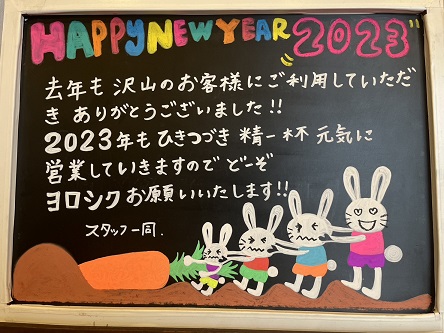 HAPPY NEW YEAR 2023
去年も 沢山のお客様にご利用していただ
き ありがとうございました!!
2023年も ひきつづき 精一杯 元気に
営業していきますので どーぞ
ヨロシク お願いいたします!!
スタッフ一同.